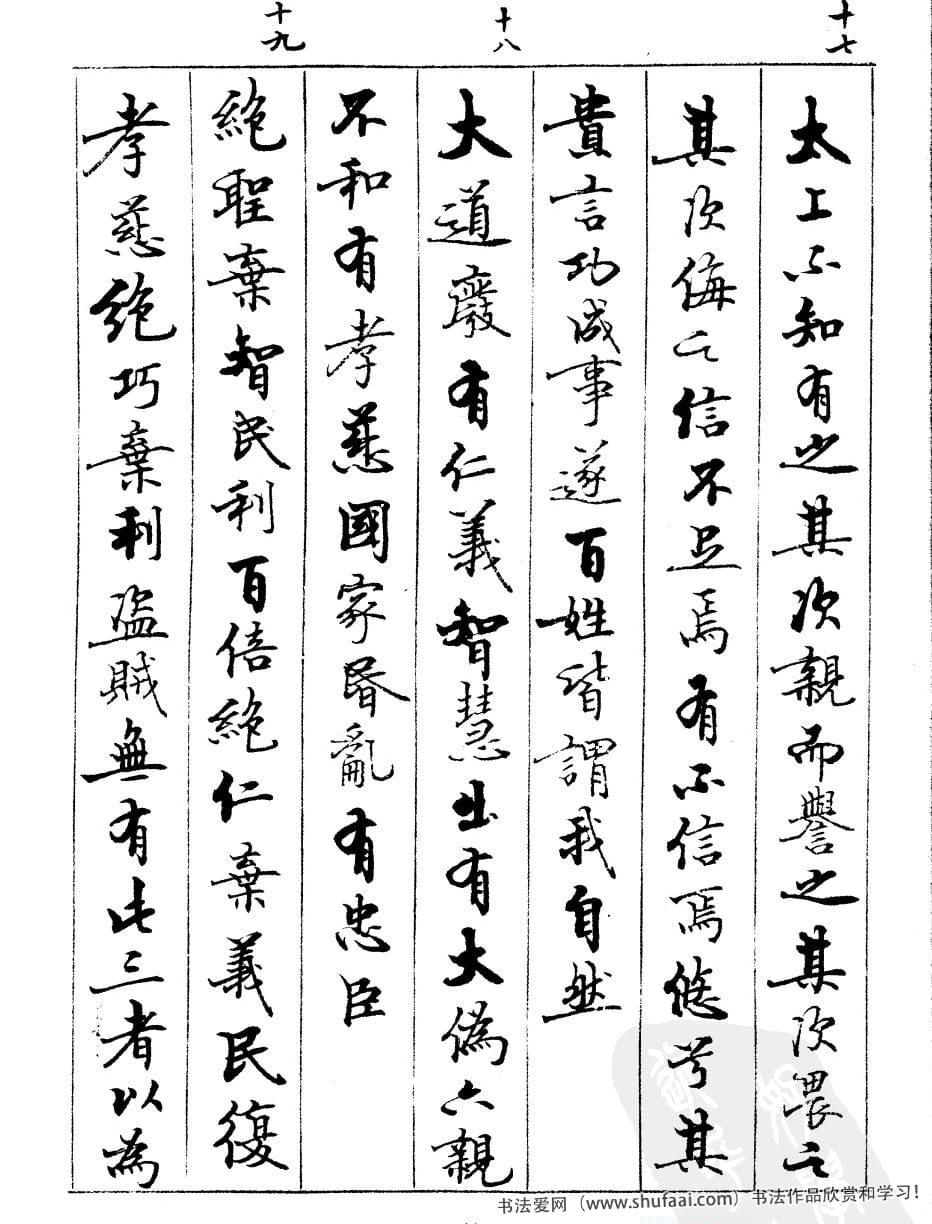 十七
太上不知有之其次親而譽之其次畏之
其次侮之信不足焉有不信焉悠兮其
貴言功成事遂百姓皆謂我自然
十八
大道廢有仁義智慧出有大偽六親
不和有孝慈國家昏亂有忠臣
十九
絶聖棄智民利百倍絶仁棄義民復
孝慈絶巧棄利盗賊無有此三者以為
书法爱网（www.shufaai.com）书法作品欣赏和学习！